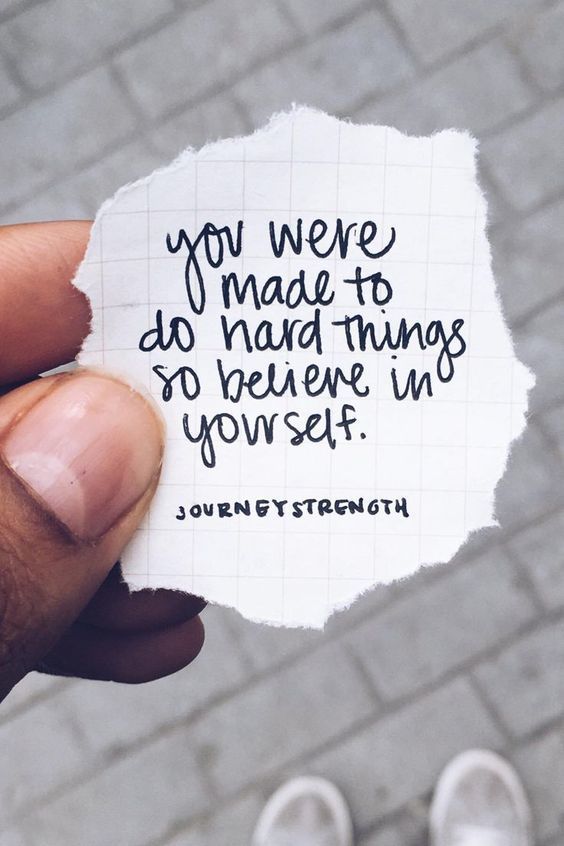 you were
made to
do hard things
so believe in
yourself.
JOURNEYSTRENGTH